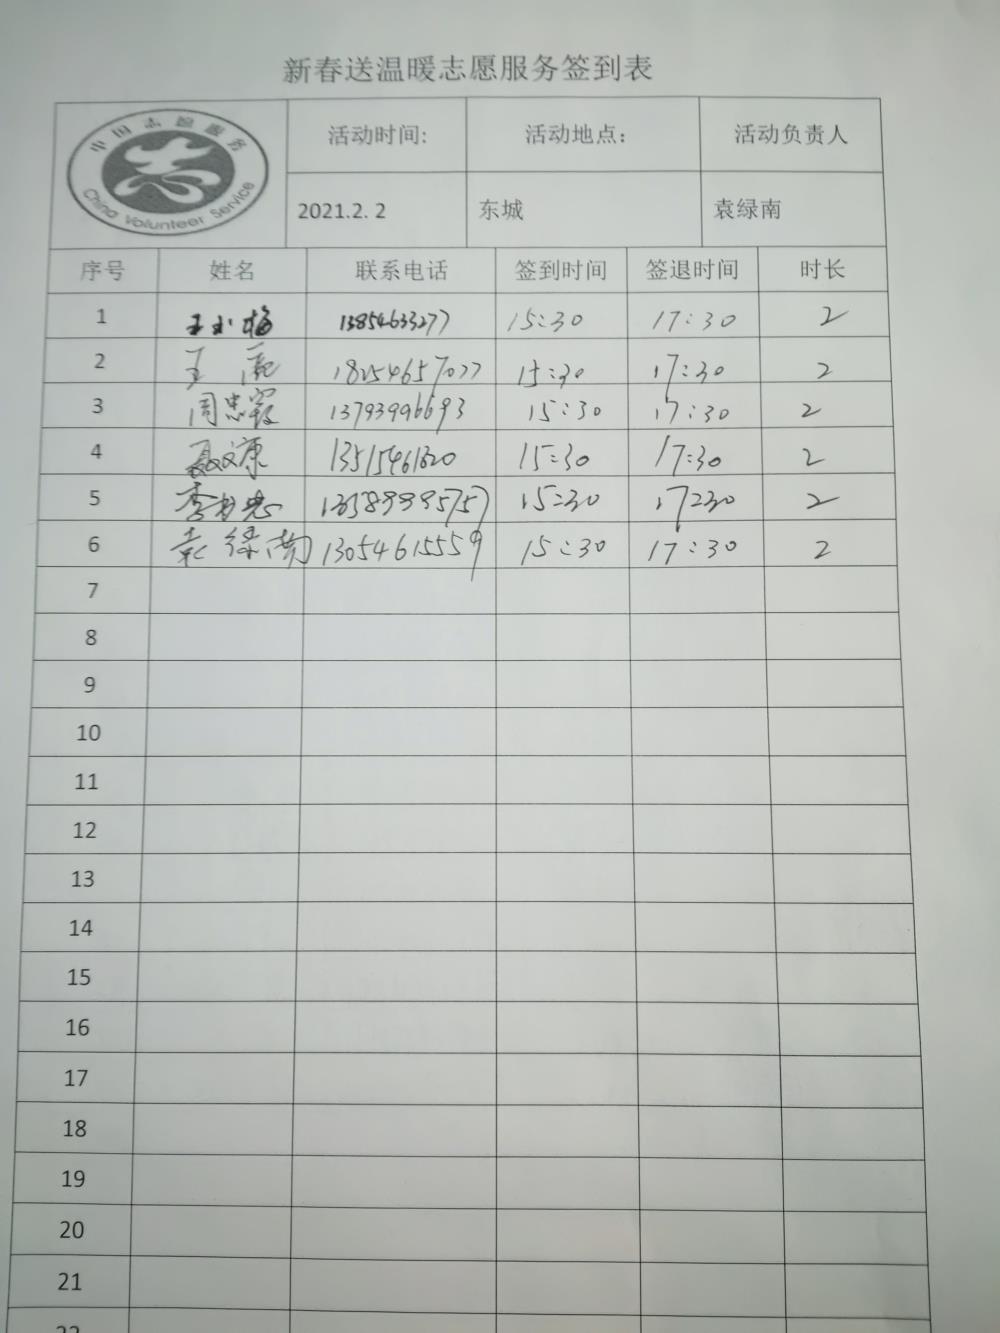 新春送温暖志愿服务签到表
中国志愿服务
China Volunteer Service
活动时间: 活动地点: 活动负责人
2021.2.2 东城 袁绿南
序号 姓名 联系电话 签到时间 签退时间 时长
1 王小梅 13854633277 15:30 17:30 2
2 王 18254657077 15:30 17:30 2
3 周忠霞 13793996693 15:30 17:30 2
4 聂文康 13515461820 15:30 17:30 2
5 李 15:30 17:30 2
6 袁绿南 13054615559 15:30 17:30 2
7
8
9
10
11
12
13
14
15
16
17
18
19
20
21
22